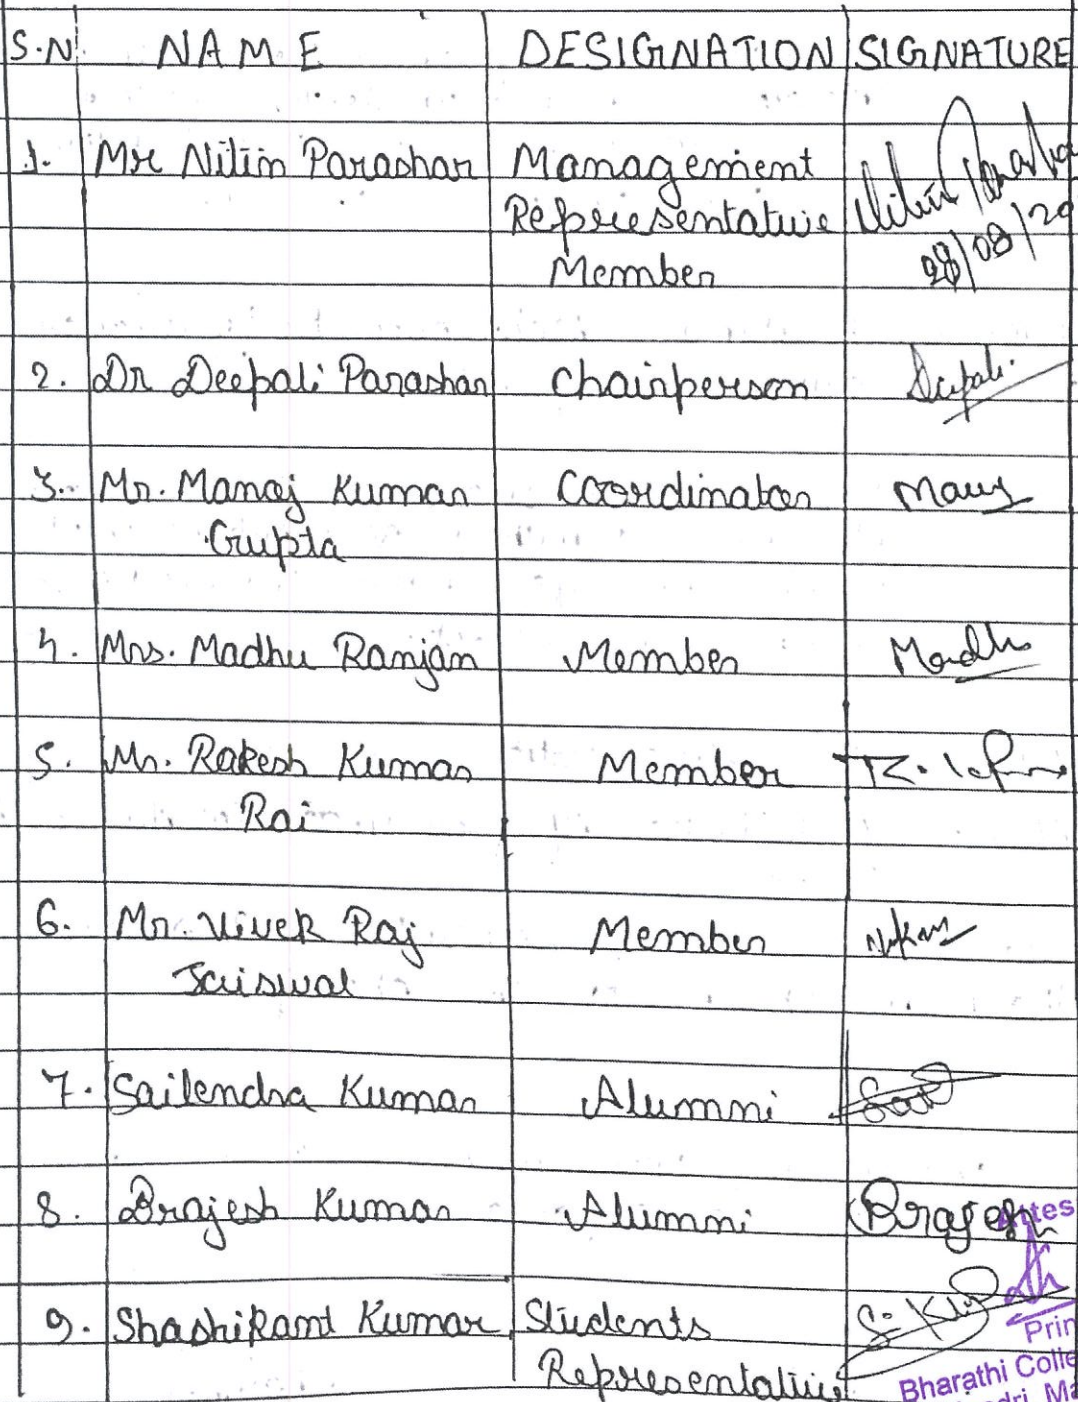 S.N. NAME DESIGNATION SIGNATURE
1. Mr Nitin Parashar Management
Representative
Member
2. Dr Deepali Parashar Chairperson Deepali
3. Mr. Manoj Kumar Coordinator Manoj
Gupta
4. Mrs. Madhu Ranjan Member Madhu
5. Mr. Rakesh Kumar Member
Rai
6. Mr. Vivek Raj Member
Jaiswal
7. Sailendra Kumar Alumni
8. Brajesh Kumar Alumni Brajesh
9. Shashikant Kumar Students
Representative
Bharathi Colle